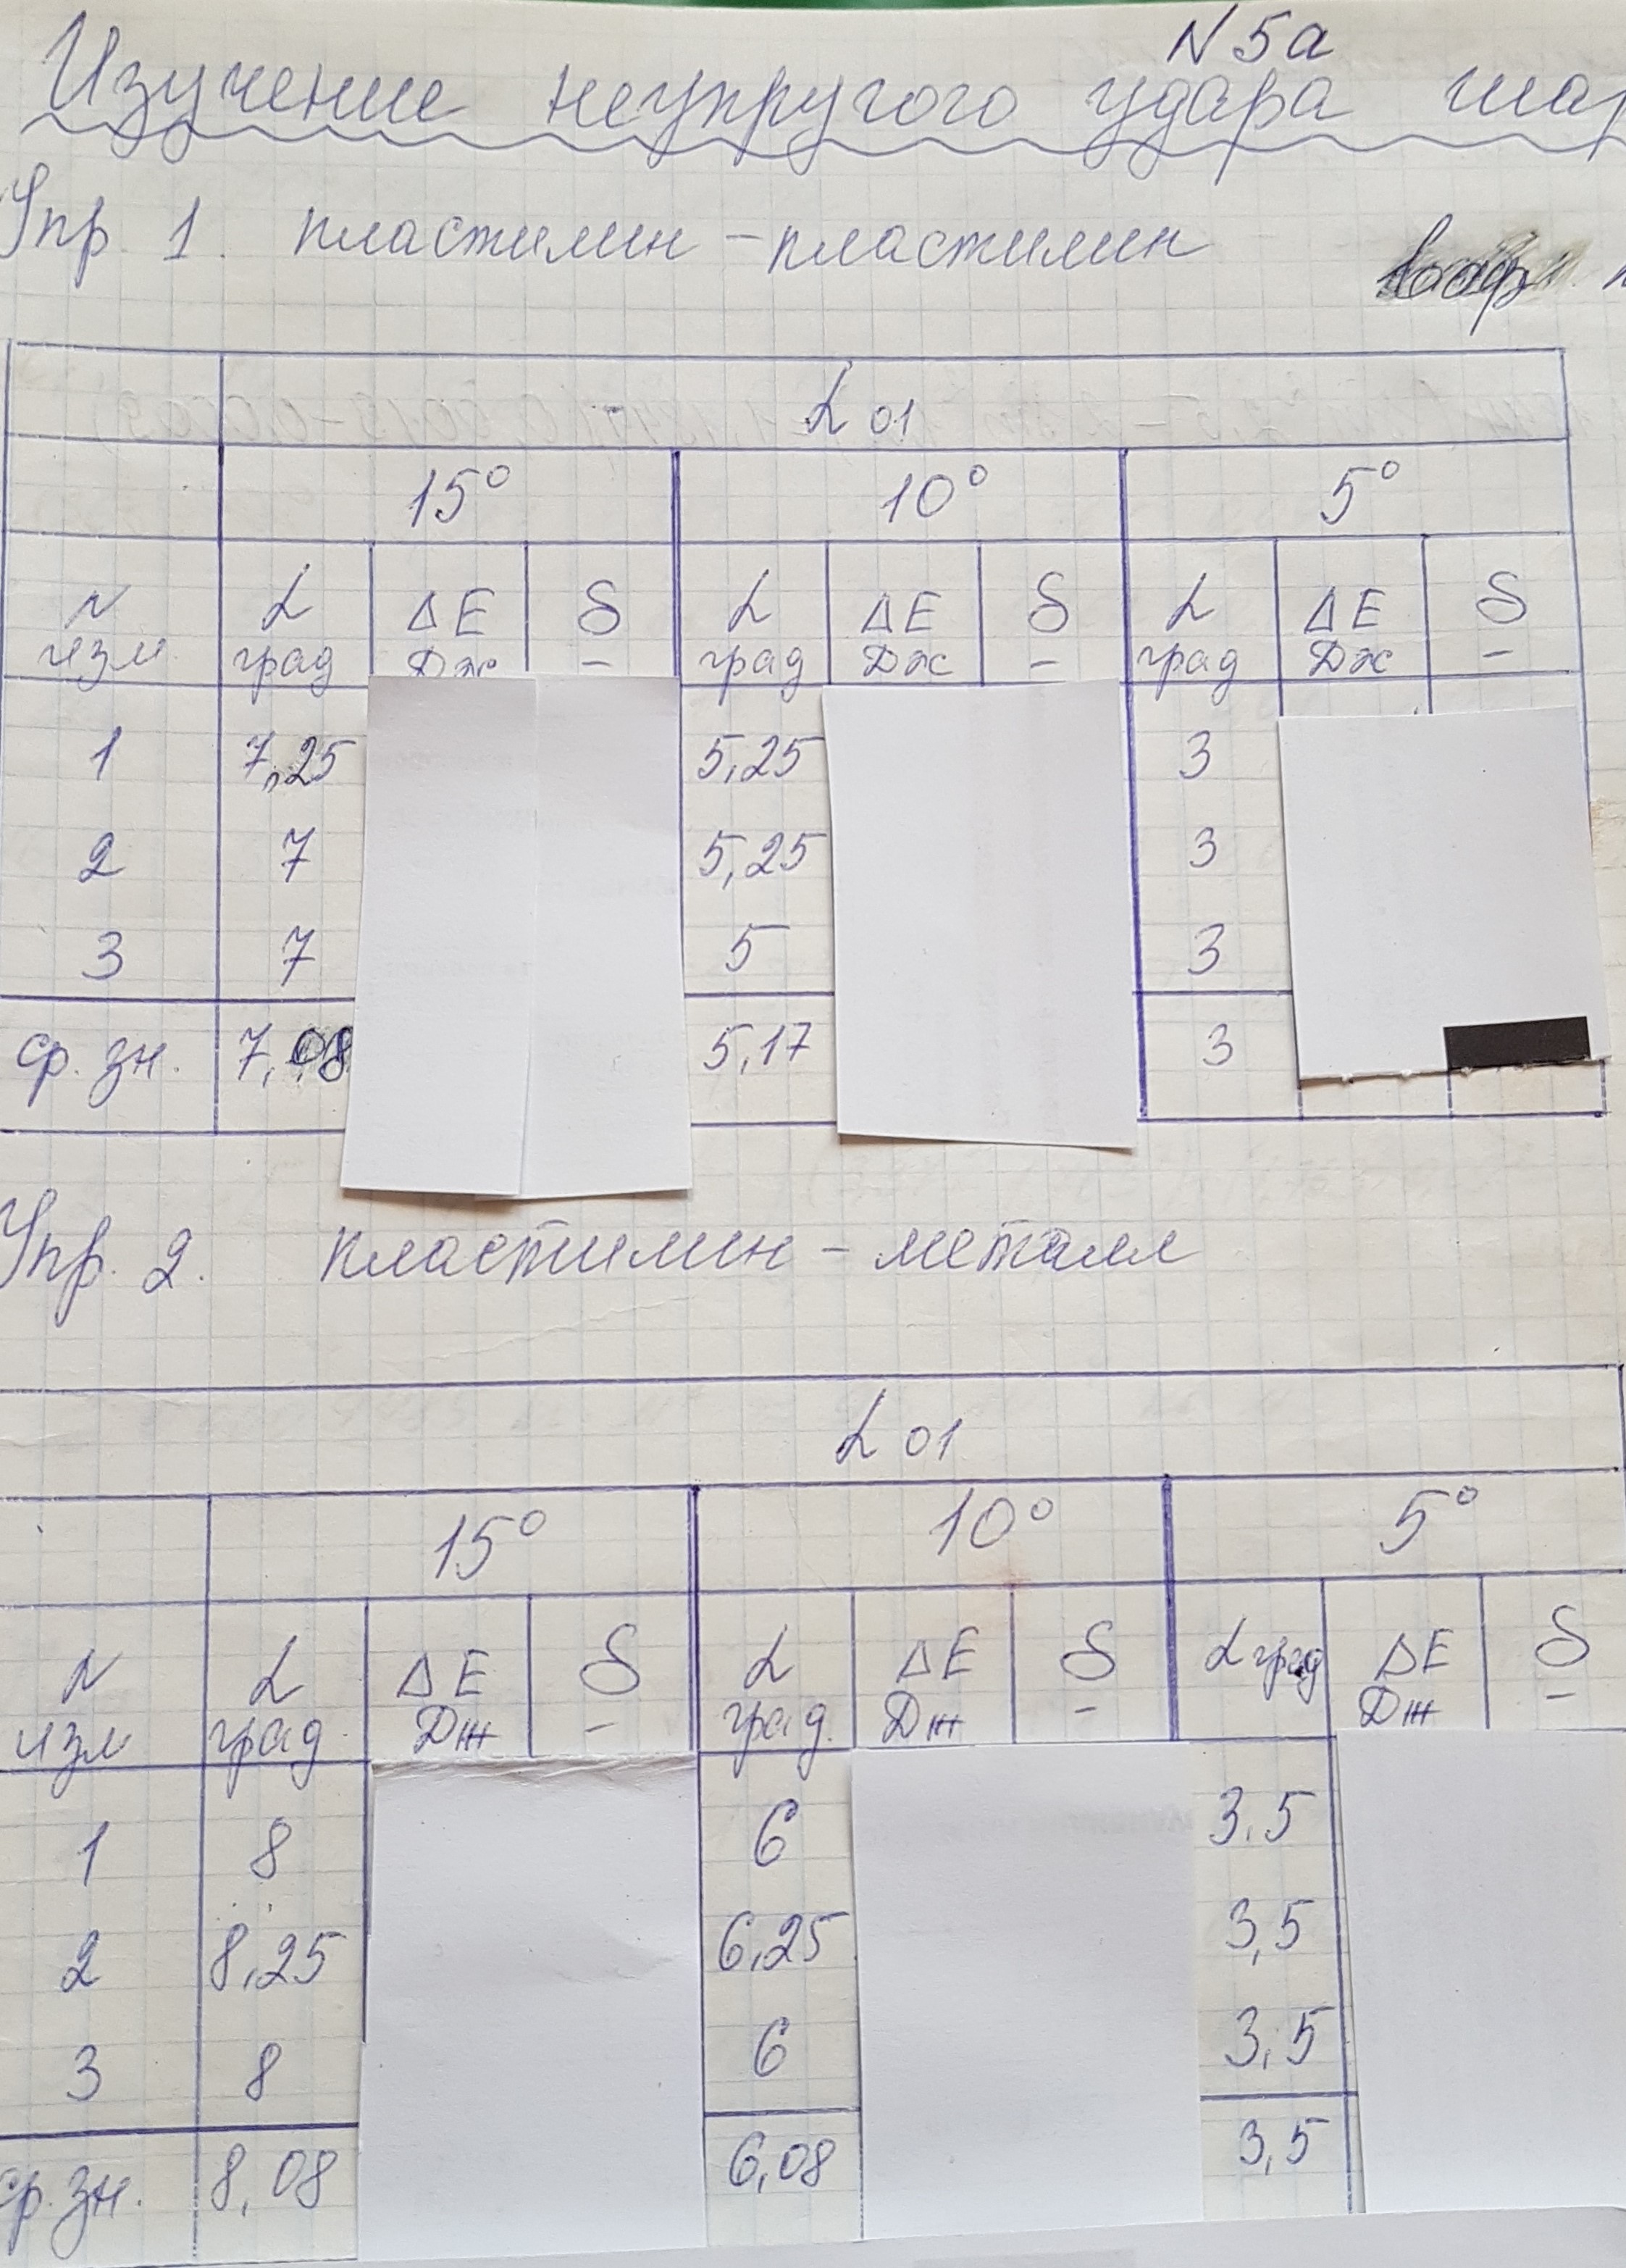 N 5а
Изучение неупругого удара шар
Упр. 1. пластилин – пластилин
L 01
15° 10° 5°
N L ΔE δ L ΔE δ L ΔE δ
изм град Дж – град Дж – град Дж –
1 7,25 5,25 3
2 7 5,25 3
3 7 5 3
ср. зн. 7,08 5,17 3
Упр. 2. пластилин – металл
L 01
15° 10° 5°
N L ΔE δ L ΔE δ L град ΔE δ
изм град Дж – град. Дж – Дж –
1 8 6 3.5
2 8,25 6,25 3,5
3 8 6 3,5
ср. зн. 8,08 6,08 3,5